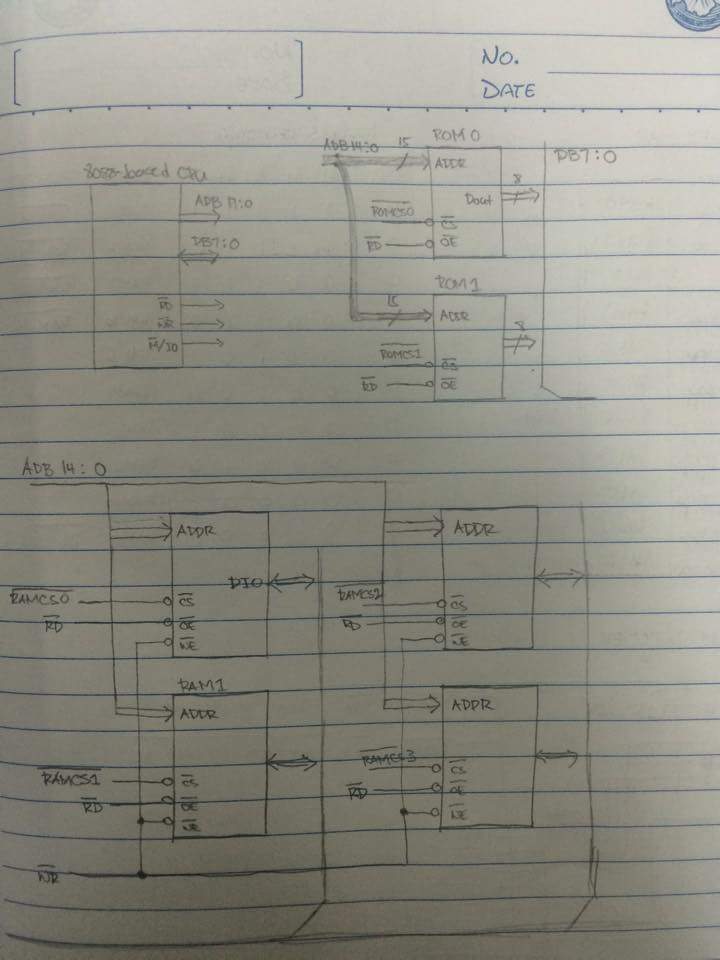 NO.
DATE
8088-based CPU
ADB 17:0
DB7:0
R̅D̅
W̅R̅
M̅/IO
ADB14:0
15
ROM 0
ADDR
Dout
8
DB7:0
R̅O̅M̅C̅S̅0̅
C̅S̅
R̅D̅
O̅E̅
ROM 1
15
ADDR
8
R̅O̅M̅C̅S̅1̅
C̅S̅
R̅D̅
O̅E̅
ADB 14:0
ADDR
DIO
R̅A̅M̅C̅S̅0̅
C̅S̅
R̅D̅
O̅E̅
W̅E̅
ADDR
R̅A̅M̅C̅S̅2̅
C̅S̅
R̅D̅
O̅E̅
W̅E̅
RAM1
ADDR
R̅A̅M̅C̅S̅1̅
C̅S̅
R̅D̅
O̅E̅
W̅E̅
ADDR
R̅A̅M̅C̅S̅3̅
C̅S̅
R̅D̅
O̅E̅
W̅E̅
W̅R̅